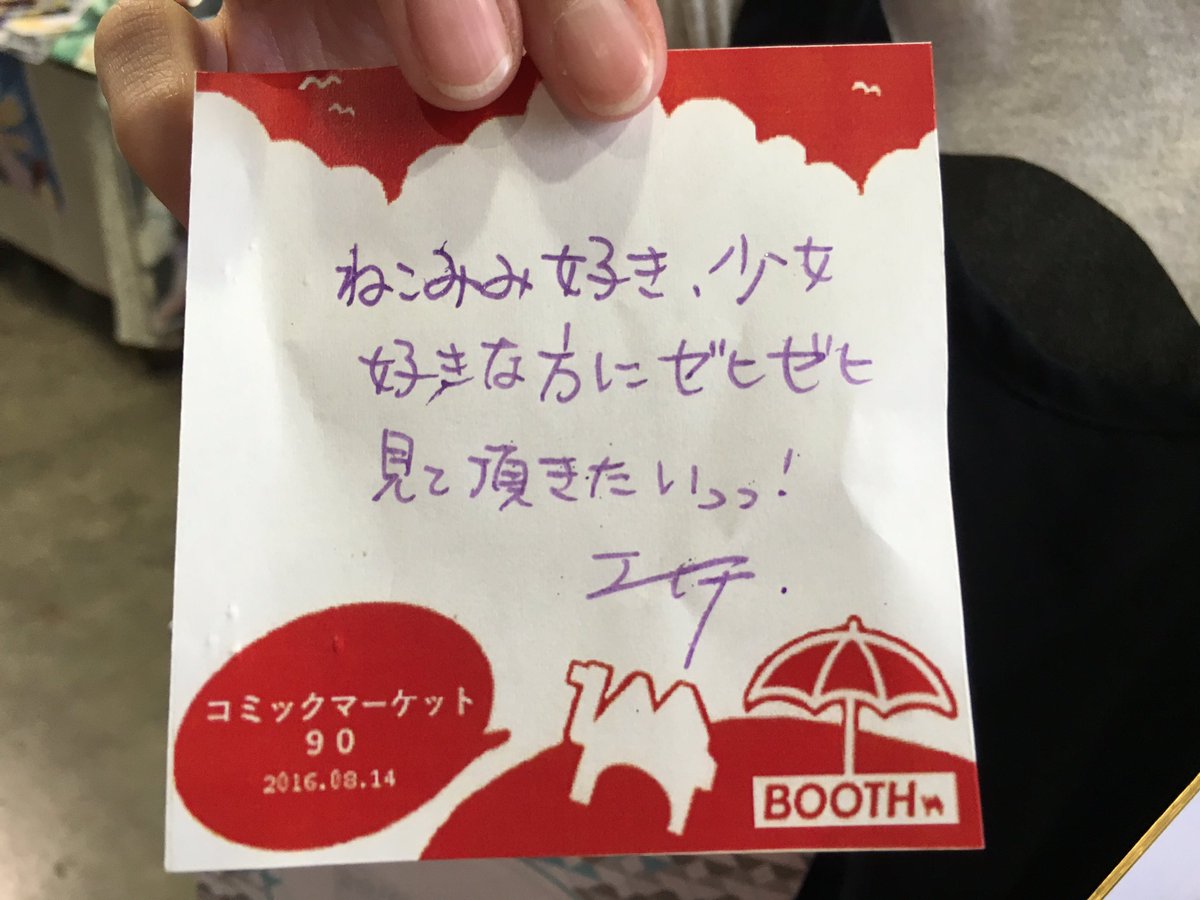 ねこみみ好き、少女
好きな方にゼヒゼヒ
見て頂きたいっっ!
コミックマーケット
90
2016.08.14
BOOTH